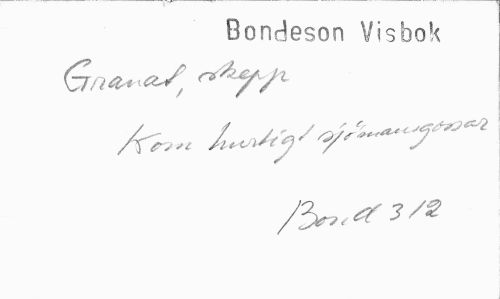 Bondeson Visbok
Granat, skepp
Kom hurtigt sjömansgossar
Bond 312